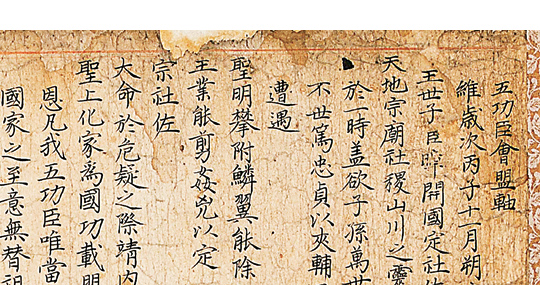 五功臣會盟軸
維歲次丙子十一月朔
王世子臣 開國定社佐
天地宗廟社稷山川之靈
於一時盖欲子孫萬世
不世篤忠貞以夾輔
遭遇
聖明攀附鱗翼能除
王業能剪姦兇以定
宗社佐
大命於危疑之際靖內
聖上化家爲國功載盟
恩凡我五功臣唯當
國家之至意無替